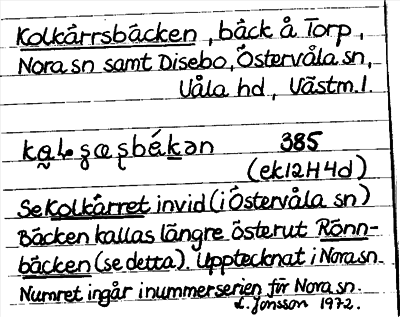 Kolkärrsbäcken, bäck å Torp,
Nora sn samt Disebo, Östervåla sn,
Våla hd, Västm. l.
385
(ek 12H4d)
Se Kolkärret invid (i Östervåla sn)
Bäcken kallas längre österut Rönn-
bäcken (se detta). Upptecknat i Nora sn.
Numret ingår i nummerserien för Nora sn.
L. Jonsson 1972.